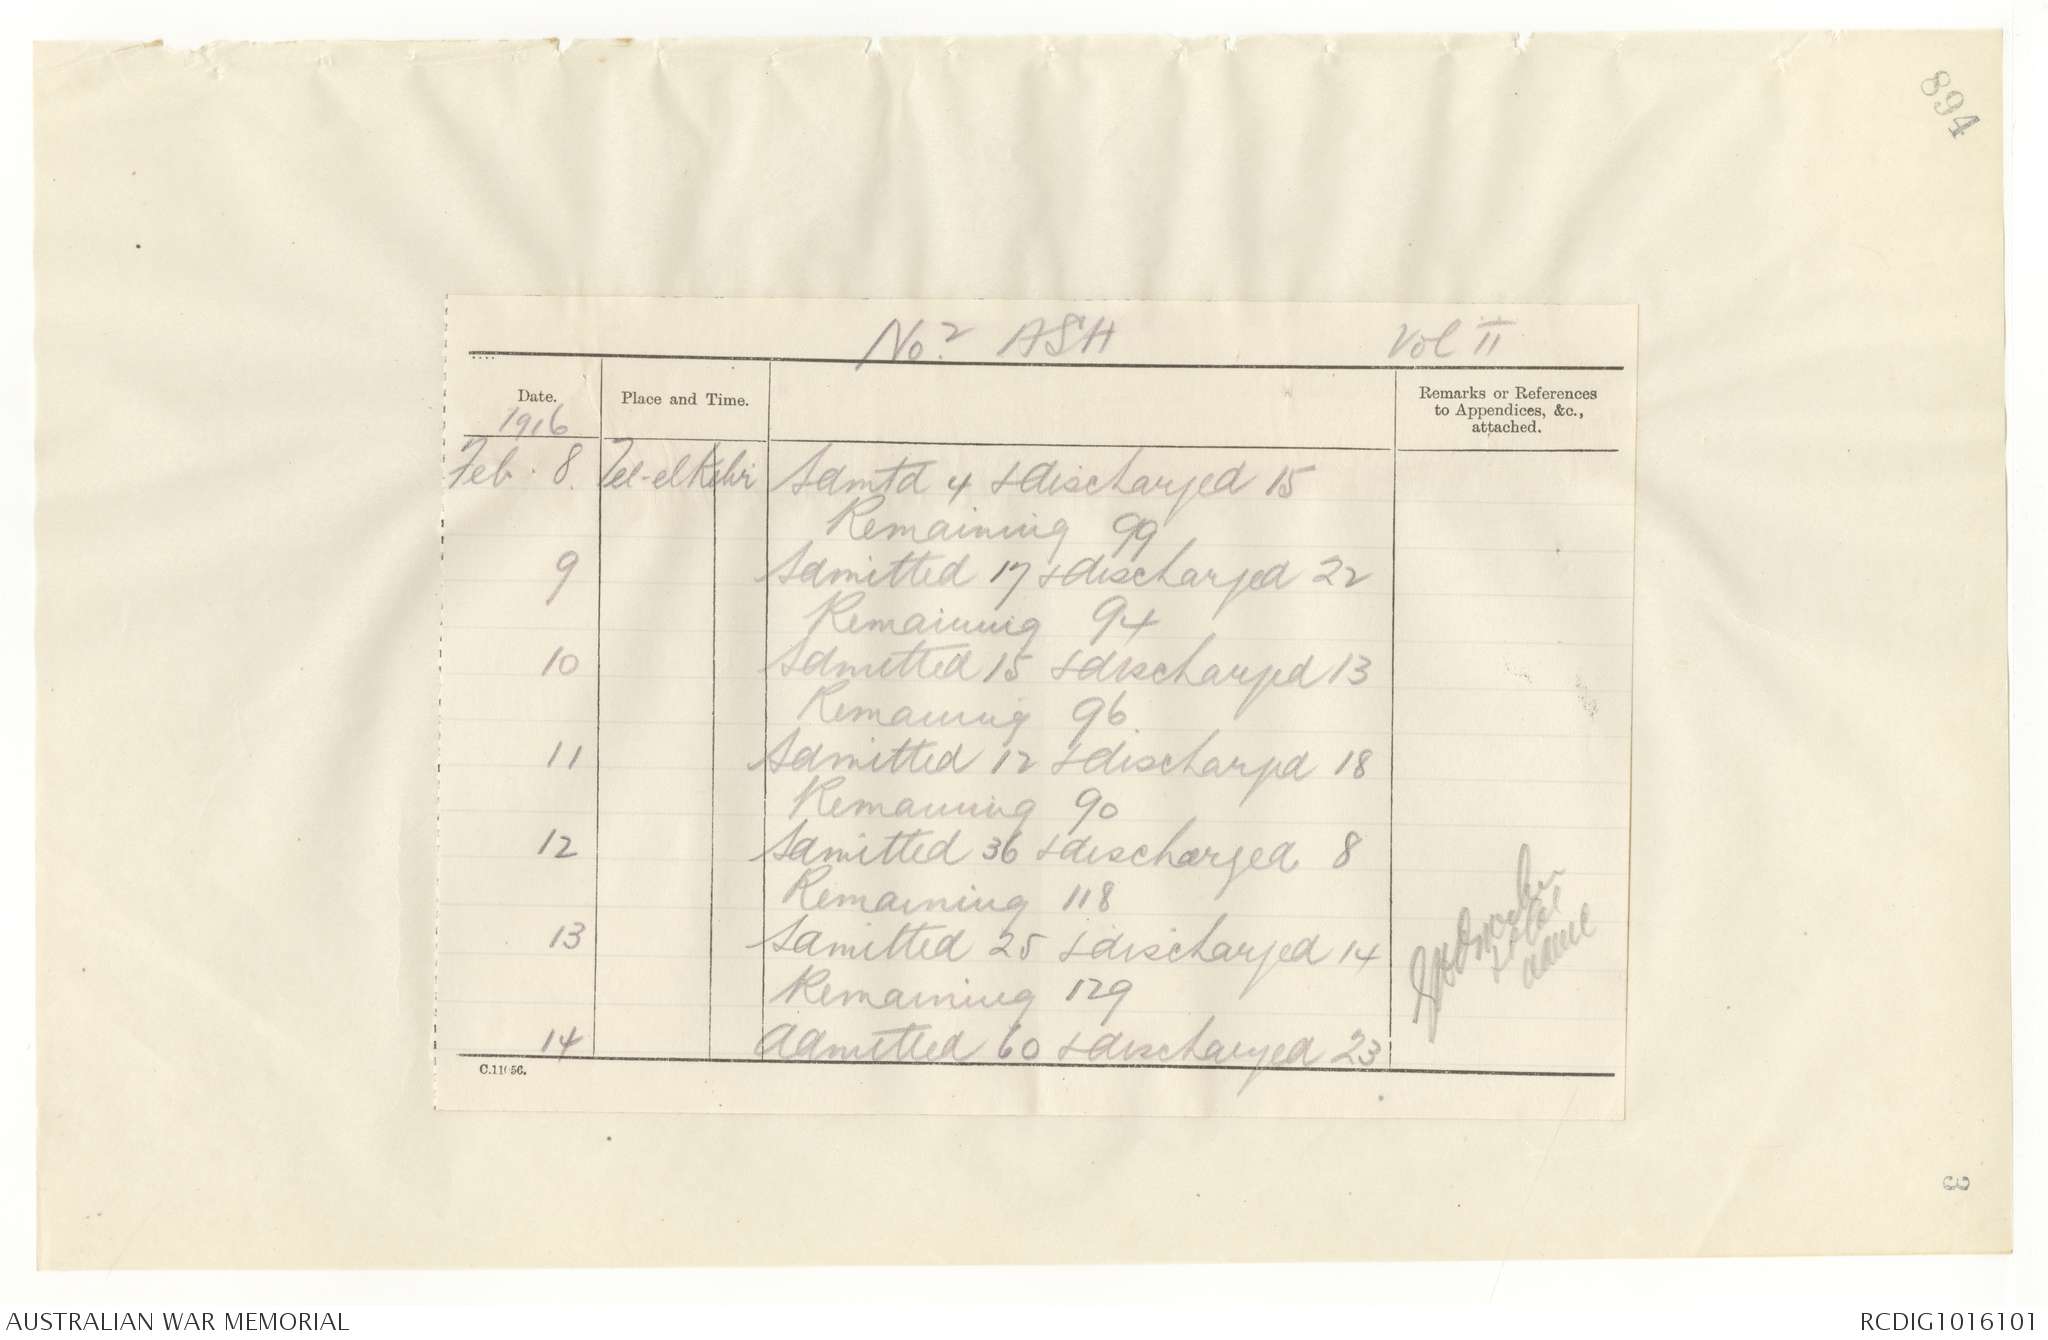 894
No. 2 ASH Vol II
Date. Place and Time. Remarks or References
to Appendices, &c.,
attached.
1916
Feb. 8. Tel-el Kebir Admtd 4 & discharged 15
Remaining 99
9 Admitted 17 & discharged 22
Remaining 94
10 Admitted 15 & discharged 13
Remaining 96
11 Admitted 12 & discharged 18
Remaining 90
12 Admitted 36 & discharged 8
Remaining 118
13 Admitted 25 & discharged 14
Remaining 129
14 Admitted 60 & discharged 23
Lt Col
AAMC
C.11056.
3
AUSTRALIAN WAR MEMORIAL RCDIG1016101